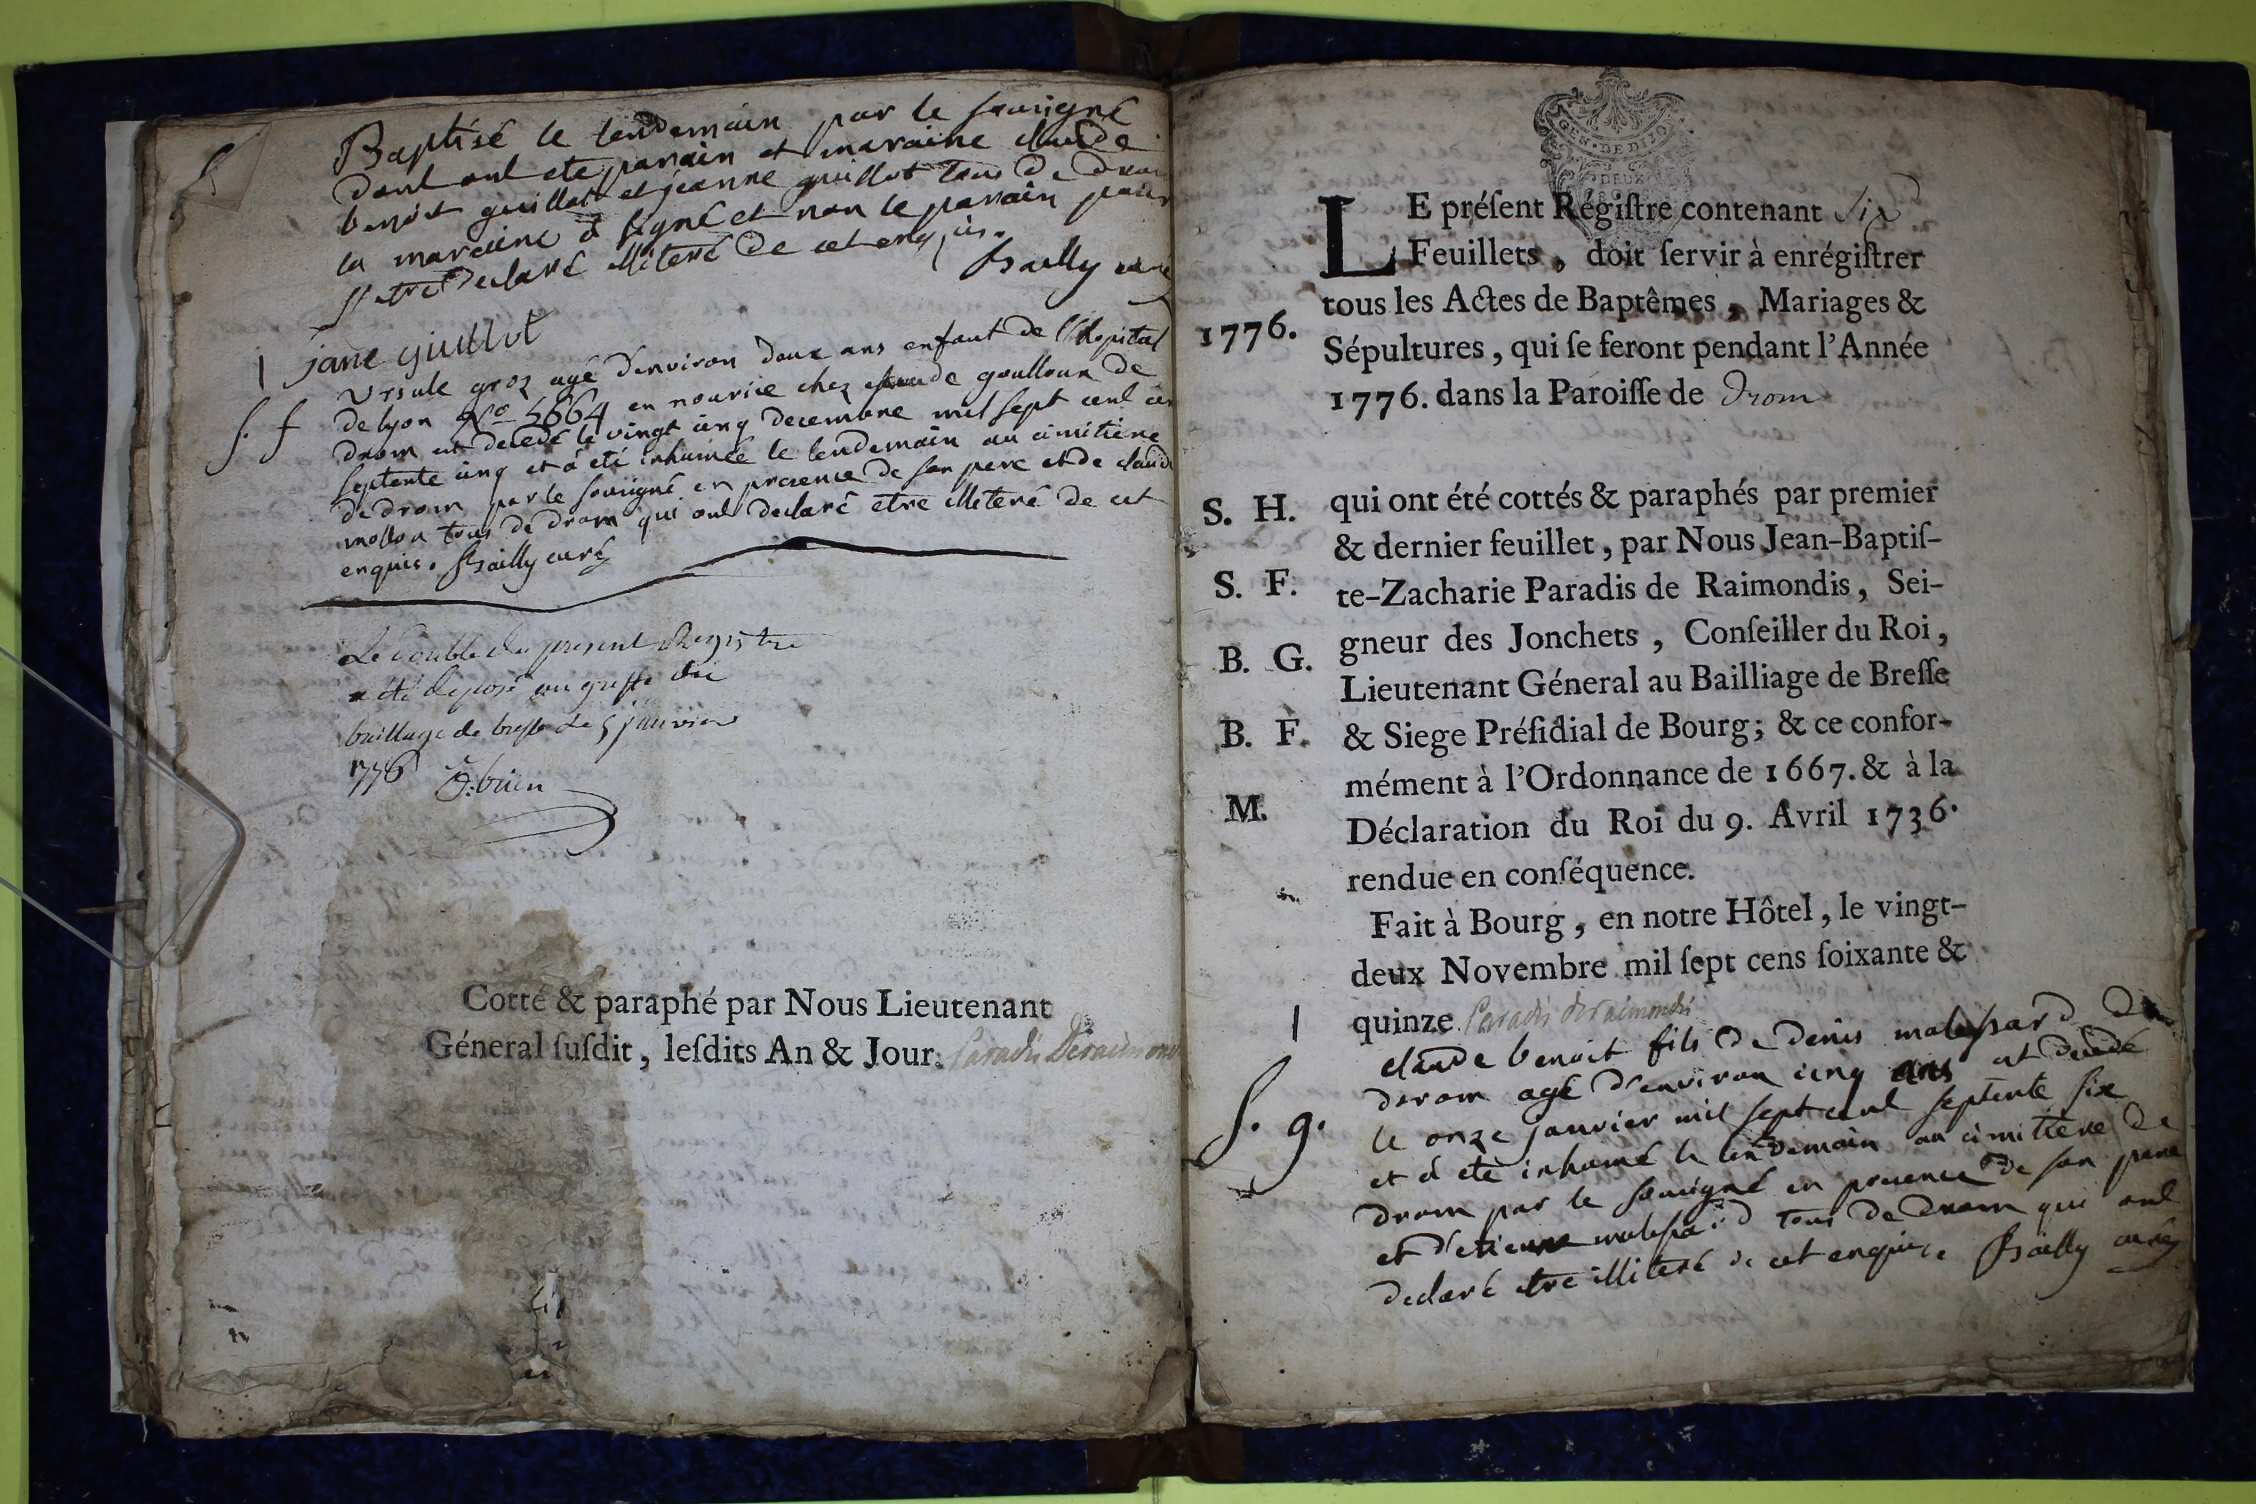 Baptisé le lendemain par le sousigné
dont ont eté parain et maraine claude
benoit guillot et jeanne guillot tous de drom
la maraine a signé et non le parain pour
s'etre declaré illiteré de cet enquis.
Bailly curé
jane guillot
Ursule groz agé d'environ deux ans enfant de l'hopital
de lyon No 5664 en nourice chez claude goulloux de
S. f
drom est decedé le vingt cinq decembre mil sept cent
septente cinq et á eté inhumée le lendemain au cimitiere
de drom par le sousigné en presence de son pere et de claude
mollon tous de drom qui ont declaré etre illiteré de cet
enquis. Bailly curé
Le double du present Registre
a été deposé au greffe du
bailliage de bresse le 5 janvier
1776
Cotté & paraphé par Nous Lieutenant
Géneral ſuſdit, leſdits An & Jour. Paradis Deraimondis
GEN. DE DIJON
DEUX
LE préſent Régiſtre contenant Six
Feuillets, doit ſervir à enrégiſtrer
tous les Actes de Baptêmes, Mariages &
1776.
Sépultures, qui ſe feront pendant l'Année
1776. dans la Paroiſſe de Drom
S. H. qui ont été cottés & paraphés par premier
& dernier feuillet, par Nous Jean-Baptiſ-
S. F. te-Zacharie Paradis de Raimondis, Sei-
gneur des Jonchets, Conſeiller du Roi,
B. G. Lieutenant Géneral au Bailliage de Breſſe
B. F. & Siege Préſidial de Bourg; & ce confor-
mément à l'Ordonnance de 1667. & à la
M. Déclaration du Roi du 9. Avril 1736.
rendue en conſéquence.
Fait à Bourg, en notre Hôtel, le vingt-
deux Novembre mil ſept cens ſoixante &
quinze Paradis deraimondis
claude benoit fils de denis malessard de
drom agé d'environ cinq ans est decedé
S. g. le onze janvier mil sept cent septente six
et á eté inhumé le lendemain au cimitiere de
drom par le sousigné en presence de son pere
et d'etienne malessard tous de drom qui ont
declaré etre illiteré de cet enquis. Bailly curé